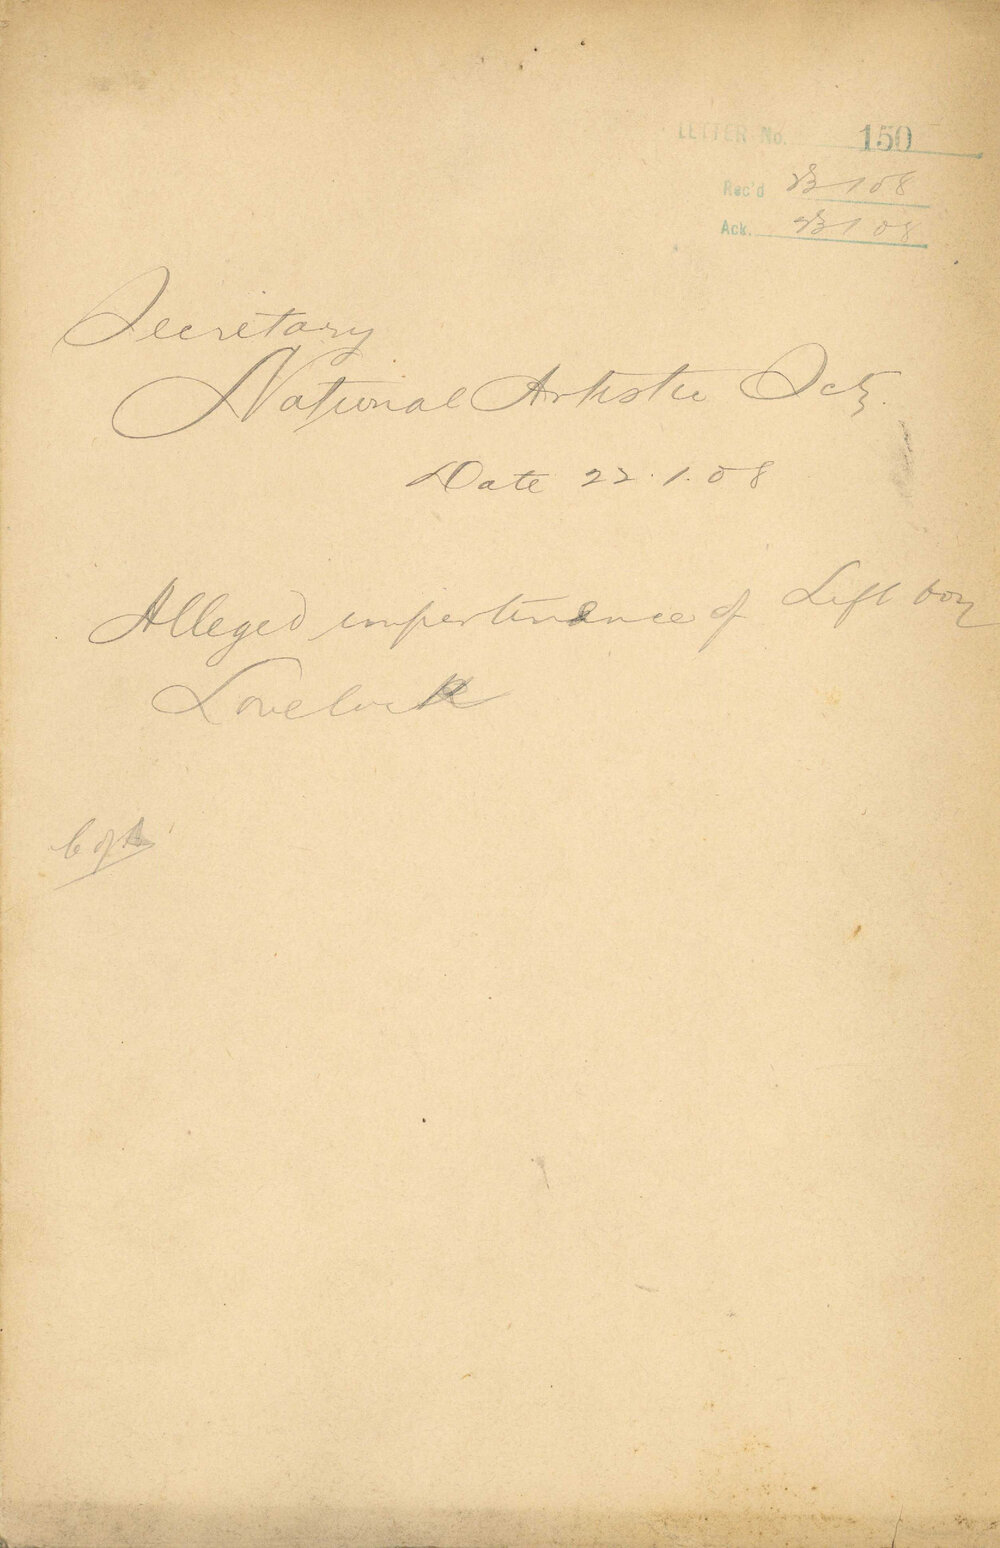 LETTER No. 150
Rec'd 23 1 08
Ack. 23 1 08
Secretary
National Artistic Scty.
Date 22.1.08
Alleged impertinence of Lift boy
Lovelock
C of A